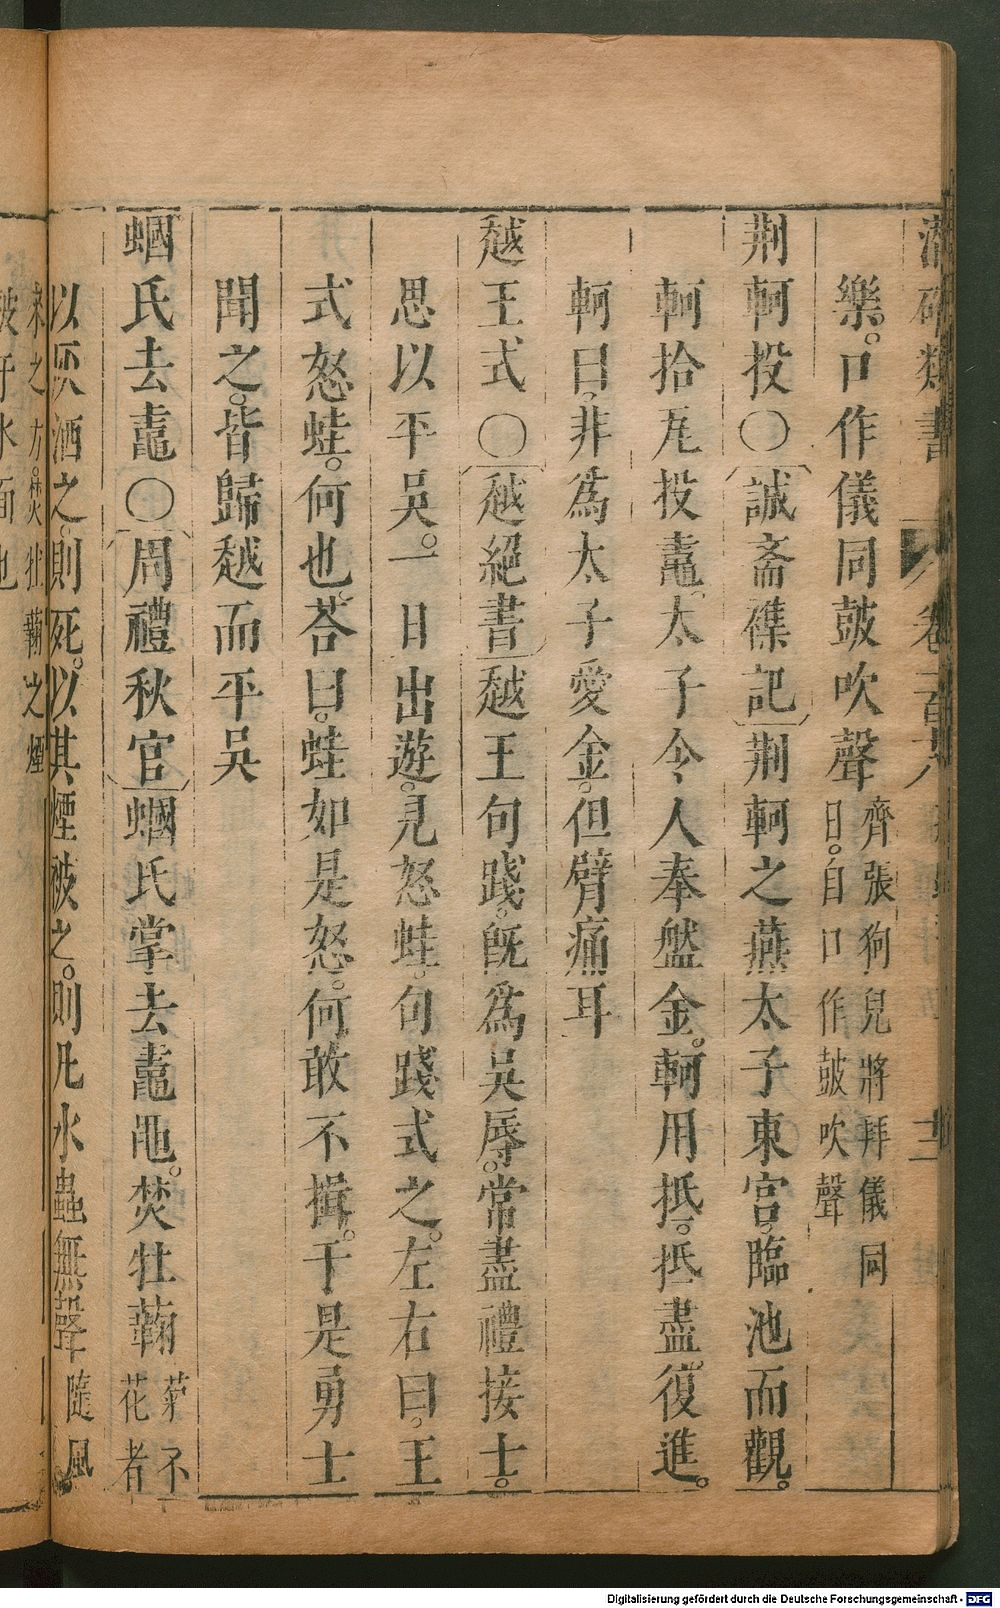 潛確類書 卷一百十八 十二
樂。口作儀同鼓吹聲 齊張狗兒將拜儀同
日。自口作鼓吹聲
荆軻投〇誠斋襍記荆軻之燕太子東宫。臨池而觀。
軻拾瓦投鼃。太子令人奉盤金。軻用抵。抵盡復進。
軻曰。非爲太子愛金。但臂痛耳
越王式〇越絕書越王句踐。旣爲吳辱。常盡禮接士。
思以平吳。一日出遊。見怒蛙。句踐式之。左右曰。王
式怒蛙。何也。荅曰。蛙如是怒。何敢不揖。于是勇士
聞之。皆歸越而平吳
蟈氏去鼃〇周禮秋官蟈氏掌去鼃黽。焚牡蘜 蘜不
花者
以灰洒之。則死。以其煙被之。則凡水蟲無聲 隨風
來之方。焚牡蘜之煙
被于水面也
Digitalisierung gefördert durch die Deutsche Forschungsgemeinschaft - DFG